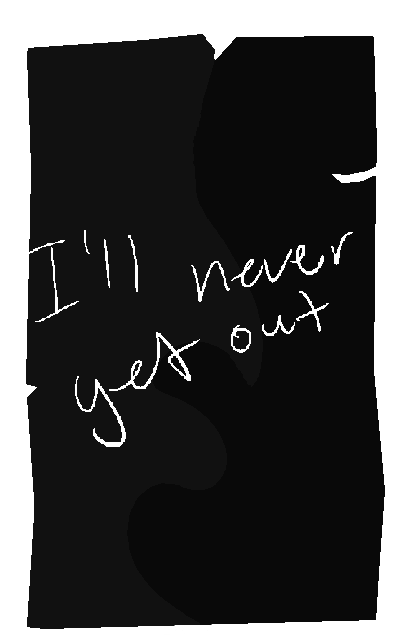 I'll never
get out